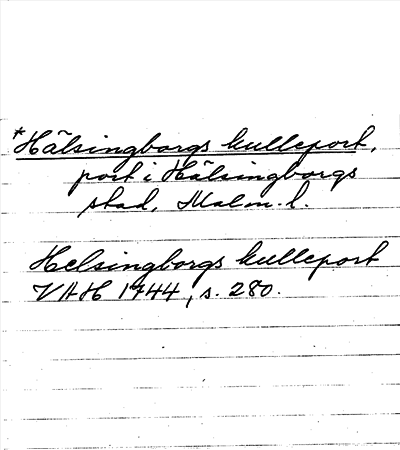 *Hälsingborgs kulleport,
port i Hälsingborgs
stad, Malm. l.
Helsingborgs kulleport
VHH 1744, s. 280.